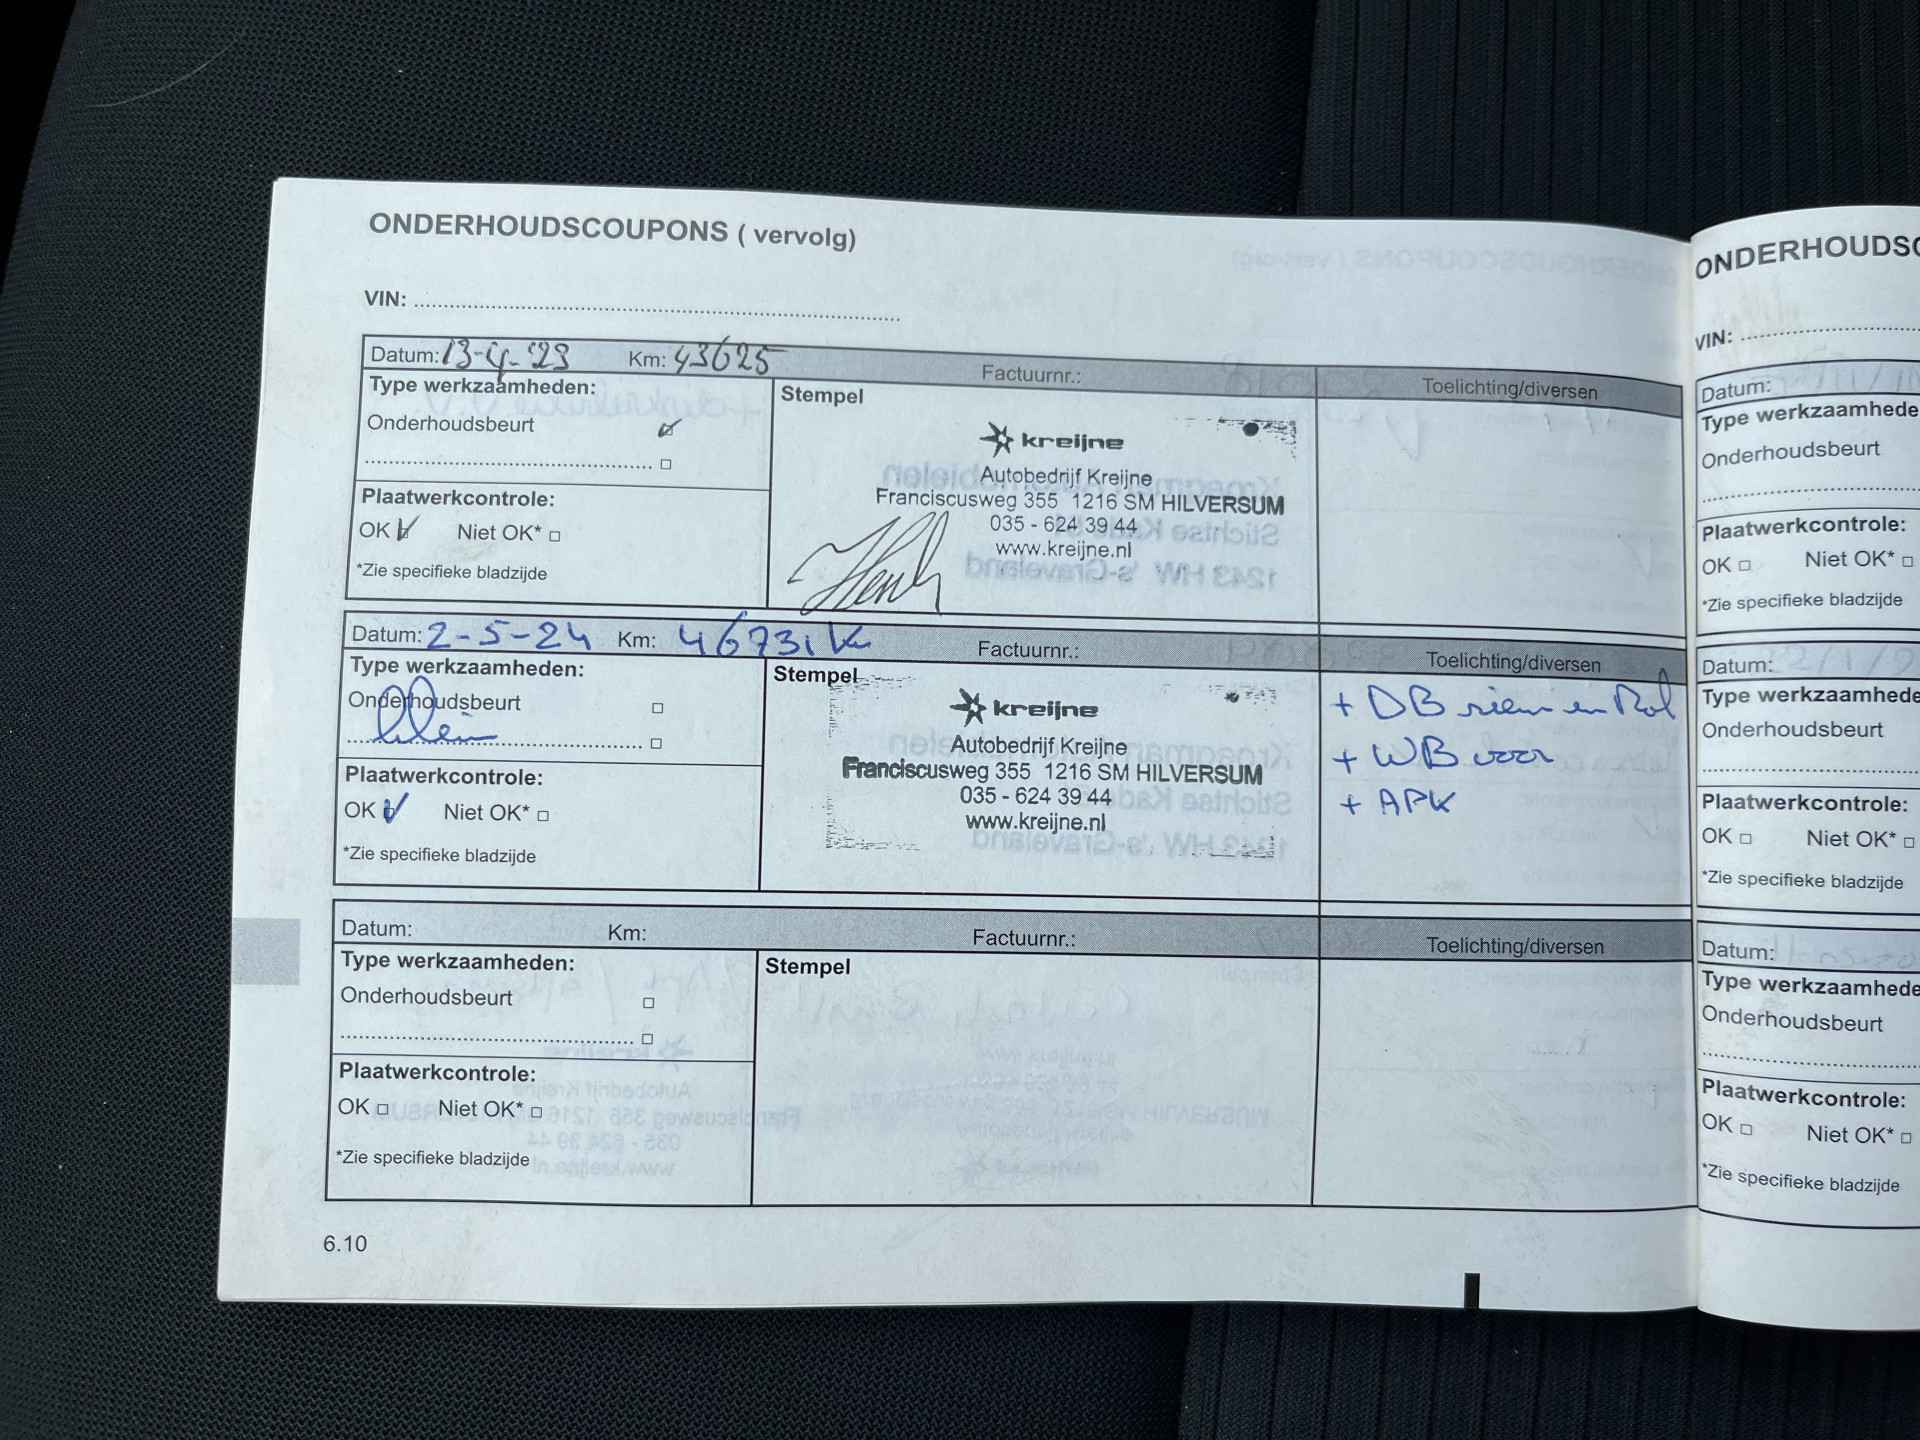 ONDERHOUDSCOUPONS ( vervolg)
VIN:
Datum: 13-4-'23 Km: 43625 Factuurnr.: Toelichting/diversen
Type werkzaamheden:
Onderhoudsbeurt
Plaatwerkcontrole:
OK Niet OK*
*Zie specifieke bladzijde
Stempel
kreijne
Autobedrijf Kreijne
Franciscusweg 355 1216 SM HILVERSUM
035 - 624 39 44
www.kreijne.nl
Datum: 2-5-24 Km: 46731 Factuurnr.: Toelichting/diversen
Type werkzaamheden:
Onderhoudsbeurt
klein
Plaatwerkcontrole:
OK Niet OK*
*Zie specifieke bladzijde
Stempel
kreijne
Autobedrijf Kreijne
Franciscusweg 355 1216 SM HILVERSUM
035 - 624 39 44
www.kreijne.nl
+ DB riem en Rol
+ WB voor
+ APK
Datum: Km: Factuurnr.: Toelichting/diversen
Type werkzaamheden:
Onderhoudsbeurt
Plaatwerkcontrole:
OK Niet OK*
*Zie specifieke bladzijde
Stempel
6.10
ONDERHOUDSC
VIN:
Datum:
Type werkzaamhede
Onderhoudsbeurt
Plaatwerkcontrole:
OK Niet OK*
*Zie specifieke bladzijde
Datum:
Type werkzaamhede
Onderhoudsbeurt
Plaatwerkcontrole:
OK Niet OK*
*Zie specifieke bladzijde
Datum:
Type werkzaamhede
Onderhoudsbeurt
Plaatwerkcontrole:
OK Niet OK*
*Zie specifieke bladzijde